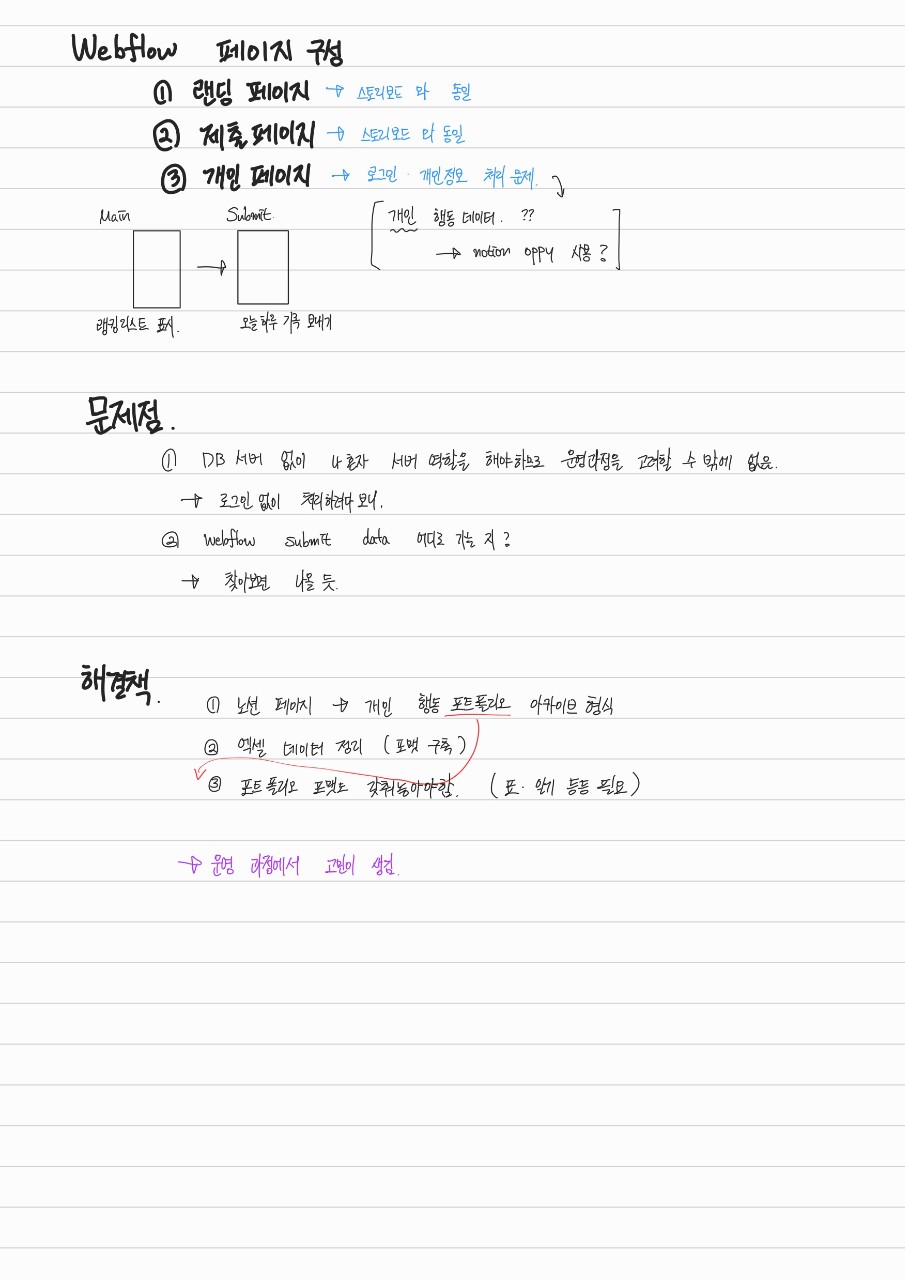 Webflow 페이지 구성
① 랜딩 페이지 → 스토리보드 와 동일
② 제출 페이지 → 스토리보드 와 동일
③ 개인 페이지 → 로그인 · 개인정보 처리 문제.
개인 행동 데이터. ??
→ notion oppy 사용?
Main Submit.
랭킹리스트 표시. 오늘하루 기록 보내기
문제점.
① DB 서버 없이 나 혼자 서버 역할을 해야하므로 운영과정을 고려할 수 밖에 없음.
→ 로그인 없이 처리하려다 보니.
② Webflow submit data 어디로 가는 지?
→ 찾아보면 나올 듯.
해결책.
① 노션 페이지 → 개인 행동 포트폴리오 아카이브 형식
② 엑셀 데이터 정리 (포맷 구축)
③ 포트폴리오 포맷도 갖춰놓아야함. (표· 악기 등등 필요)
→ 운영 과정에서 고민이 생김.